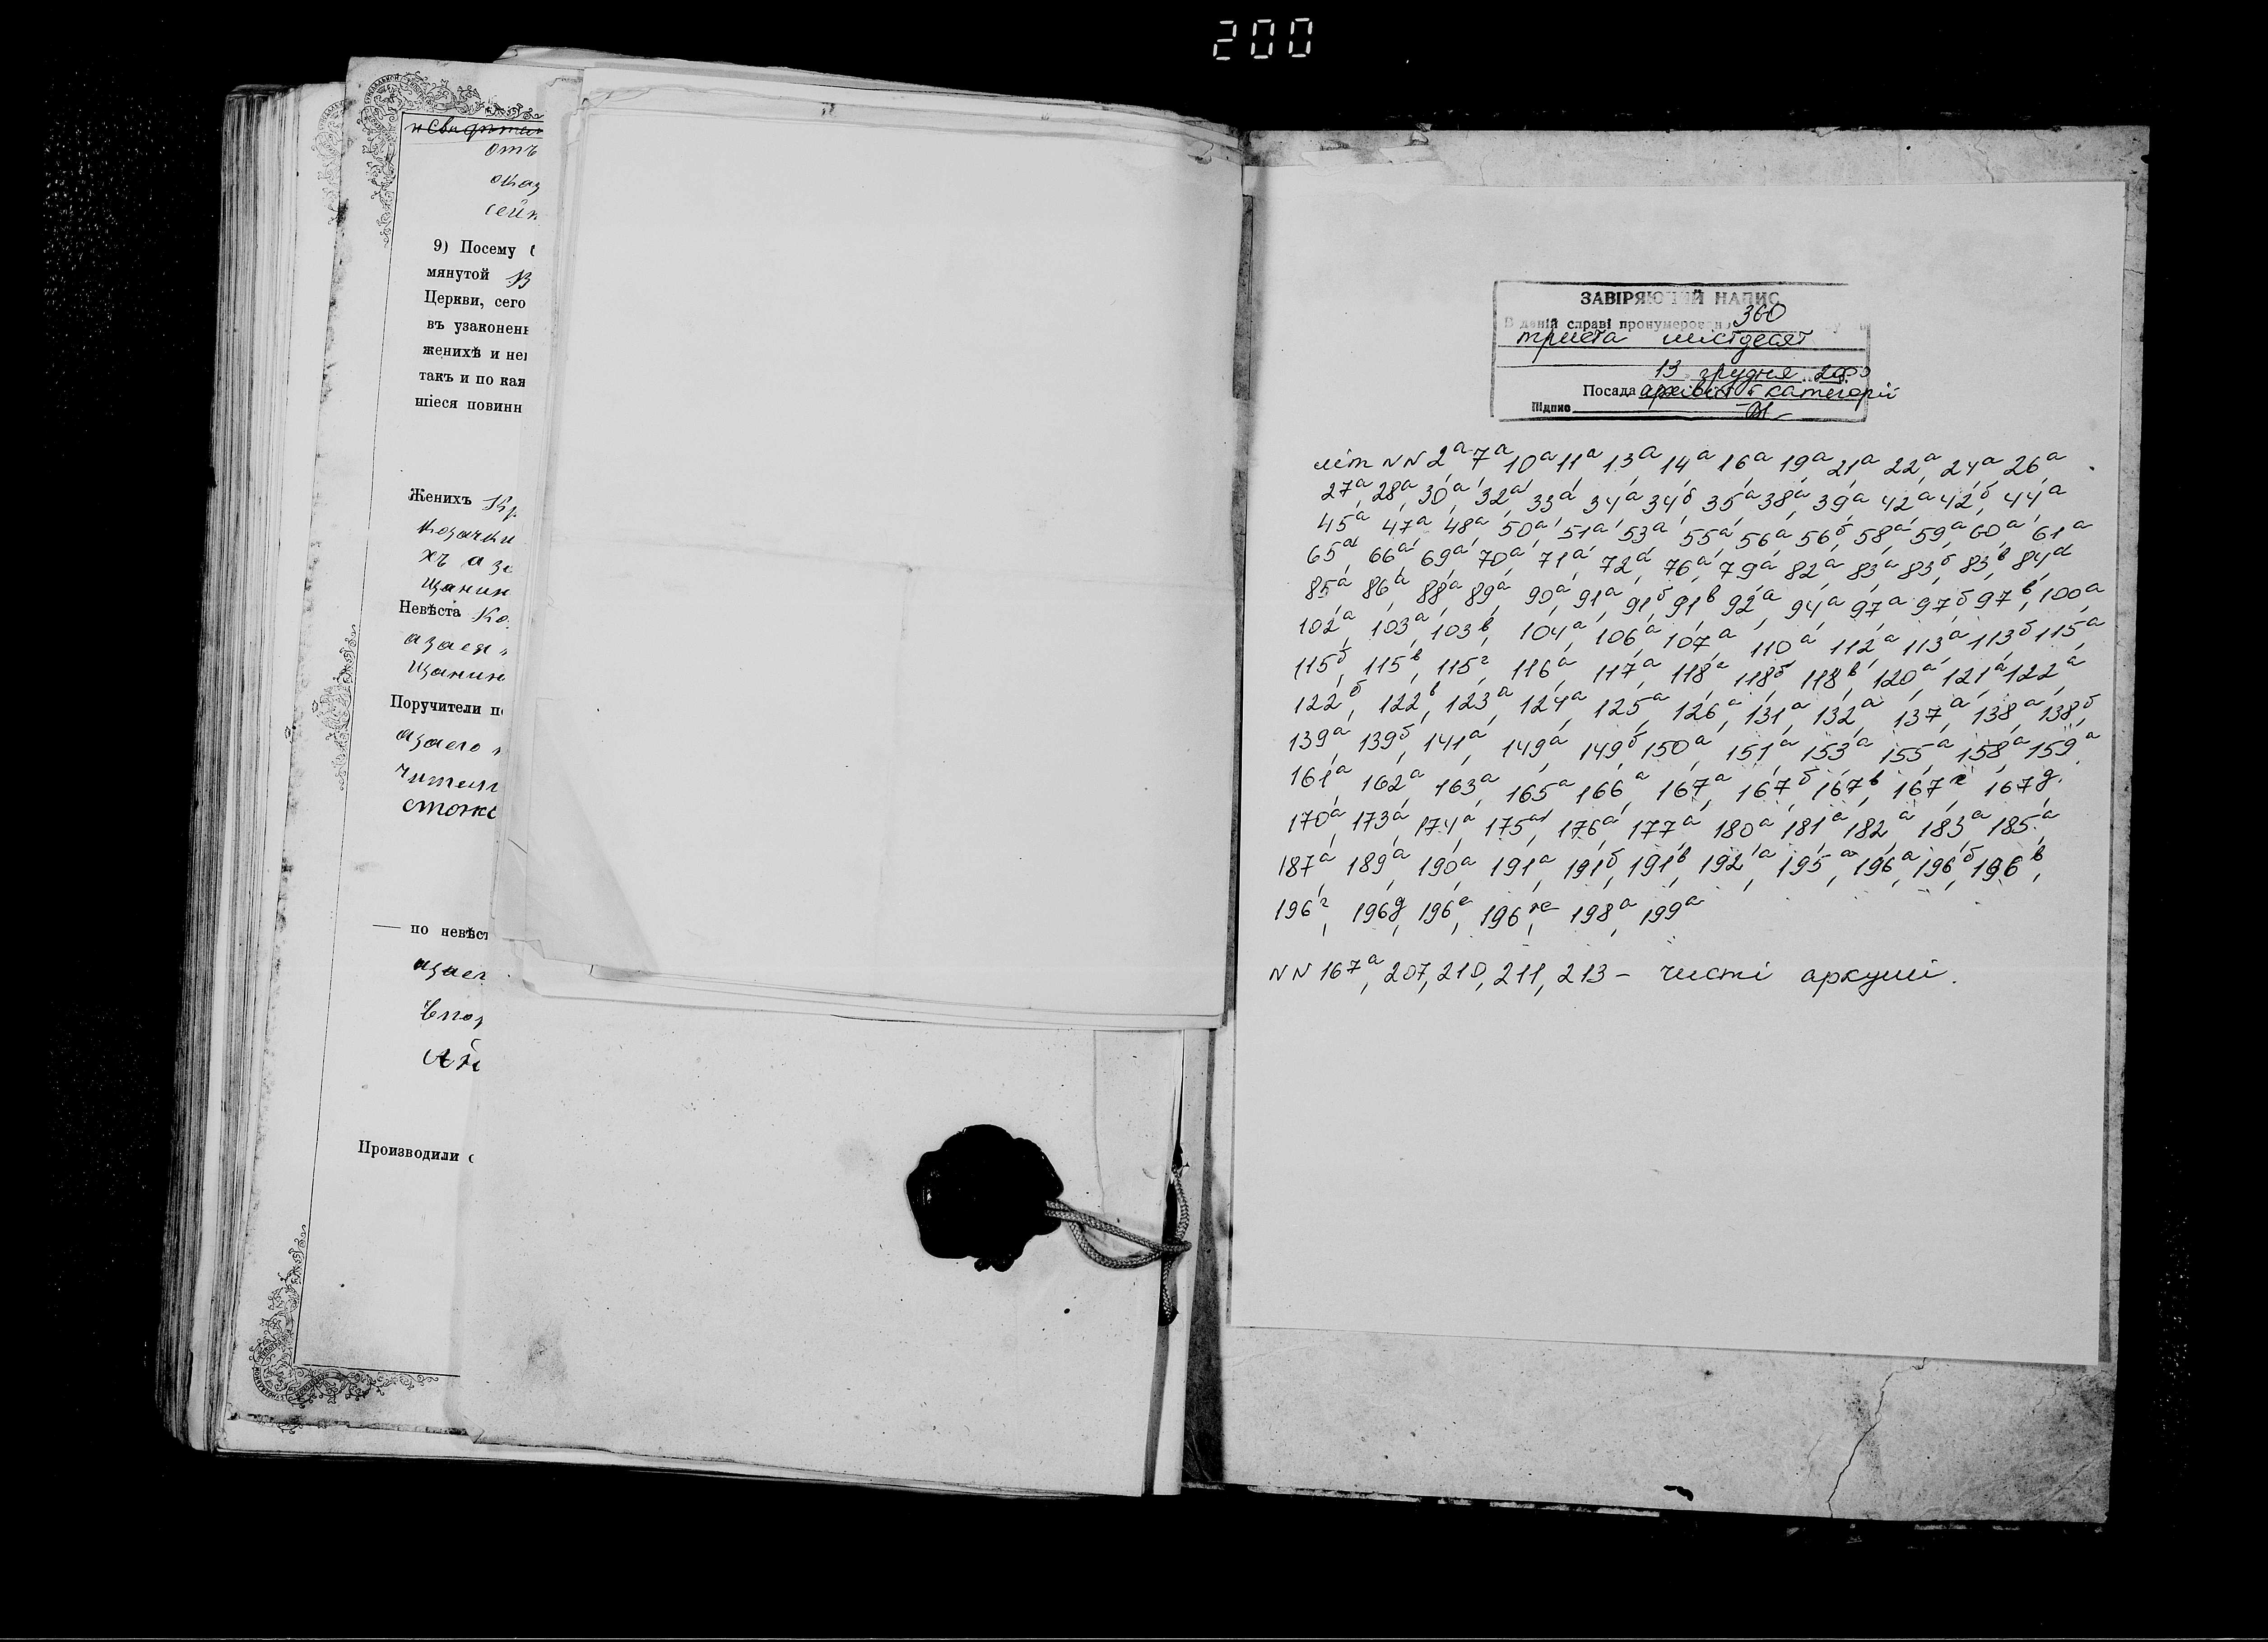 200
отъ
9) Посему
мянутой
Церкви, сего
въ узаконен
женихѣ и не
такъ и по кая
шіеся повинн
Женихъ
козачки
хъ а зе
щанин
Невѣста Ко
азаея
щанин
Поручители п
азаего
стоже
— по невѣст
Производили с
ЗАВІРЯЮЧИЙ НАПИС
В даній справі пронумеровано 360
триста шістдесят
13 грудня 2000
Посада архівіст І категорії
Підпис
літ NN 2а 7а 10а 11а 13а 14а 16а 19а 21а 22а 24а 26а
27а, 28а, 30а, 32а, 33а, 34а, 34б, 35а, 38а, 39а, 42а, 42б, 44а
45а, 47а, 48а, 50а, 51а, 53а, 55а, 56а, 56б, 58а, 59а, 60а, 61а
65а, 66а, 69а, 70а, 71а, 72а, 76а, 79а, 82а, 83а, 83б, 83в, 84а
85а, 86а, 88а, 89а, 90а, 91а, 91б, 91в, 92а, 94а, 97а, 97б, 97в, 100а
102а, 103а, 103в, 104а, 106а, 107а, 110а, 112а, 113а, 113б, 115а
115б, 115в, 115г, 116а, 117а, 118а, 118б, 118в, 120а, 121а, 122а
122б, 122в, 123а, 124а, 125а, 126а, 131а, 132а, 137а, 138а, 138б
139а, 139б, 141а, 149а, 149б, 150а, 151а, 153а, 155а, 158а, 159а
161а, 162а, 163а, 165а, 166а, 167а, 167б, 167в, 167г, 167д.
170а, 173а, 174а, 175а, 176а, 177а, 180а, 181а, 182а, 183а, 185а
187а, 189а, 190а, 191а, 191б, 191в, 192а, 195а, 196а, 196б, 196в,
196г, 196д, 196е, 196ж, 198а, 199а
NN 167а, 207, 210, 211, 213 – чисті аркуші.